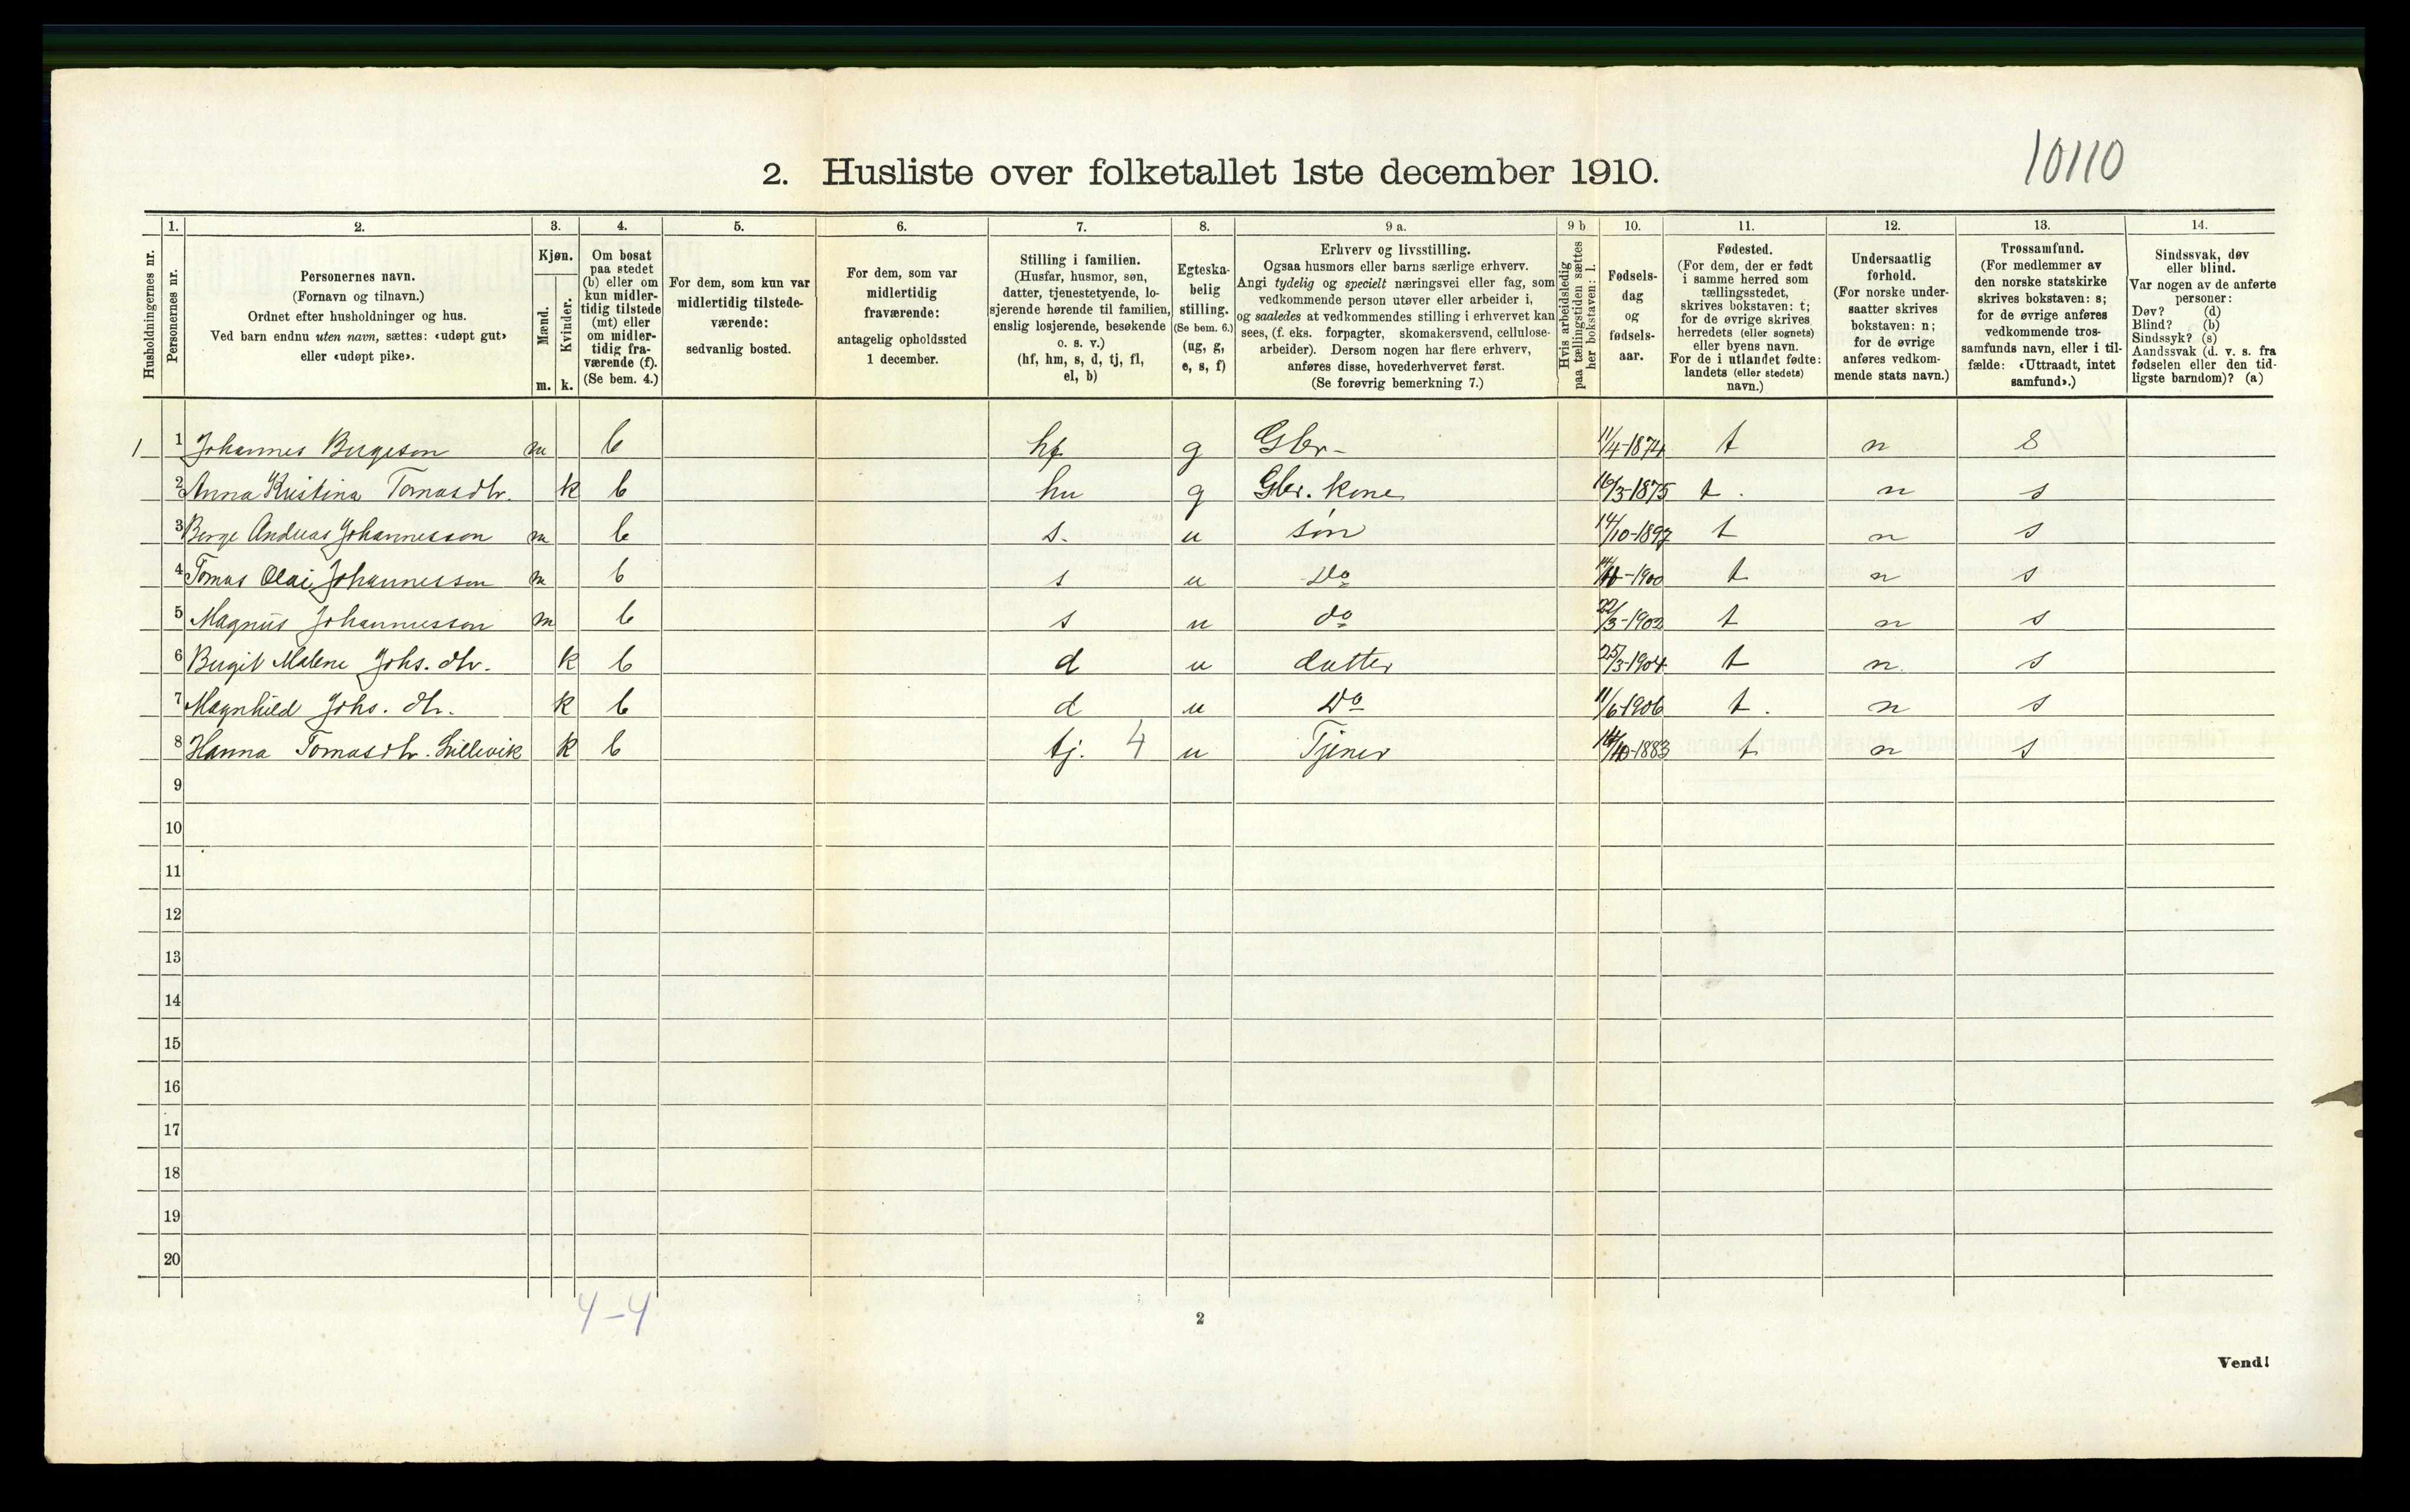 10110
2. Husliste over folketallet 1ste december 1910.
1. 2. 3. 4. 5. 6. 7. 8. 9 a. 9 b 10. 11. 12. 13. 14.
Husholdningernes nr.
Personernes nr.
Personernes navn.
(Fornavn og tilnavn.)
Ordnet efter husholdninger og hus.
Ved barn endnu uten navn, sættes: «udøpt gut»
eller «udøpt pike».
Kjøn.
Mænd.
Kvinder.
m. k.
Om bosat
paa stedet
(b) eller om
kun midler-
tidig tilstede
(mt) eller
om midler-
tidig fra-
værende (f).
(Se bem. 4.)
For dem, som kun var
midlertidig tilstede-
værende:
sedvanlig bosted.
For dem, som var
midlertidig
fraværende:
antagelig opholdssted
1 december.
Stilling i familien.
(Husfar, husmor, søn,
datter, tjenestetyende, lo-
sjerende hørende til familien,
enslig losjerende, besøkende
o. s. v.)
(hf, hm, s, d, tj, fl,
el, b)
Egteska-
belig
stilling.
(Se bem. 6.)
(ug, g,
e, s, f)
Erhverv og livsstilling.
Ogsaa husmors eller barns særlige erhverv.
Angi tydelig og specielt næringsvei eller fag, som
vedkommende person utøver eller arbeider i,
og saaledes at vedkommendes stilling i erhvervet kan
sees, (f. eks. forpagter, skomakersvend, cellulose-
arbeider). Dersom nogen har flere erhverv,
anføres disse, hovederhvervet først.
(Se forøvrig bemerkning 7.)
Hvis arbeidsledig
paa tællingstiden sættes
her bokstaven: l.
Fødsels-
dag
og
fødsels-
aar.
Fødested.
(For dem, der er født
i samme herred som
tællingsstedet,
skrives bokstaven: t;
for de øvrige skrives
herredets (eller sognets)
eller byens navn.
For de i utlandet fødte:
landets (eller stedets)
navn.)
Undersaatlig
forhold.
(For norske under-
saatter skrives
bokstaven: n;
for de øvrige
anføres vedkom-
mende stats navn.)
Trossamfund.
(For medlemmer av
den norske statskirke
skrives bokstaven: s;
for de øvrige anføres
vedkommende tros-
samfunds navn, eller i til-
fælde: «Uttraadt, intet
samfund».)
Sindssvak, døv
eller blind.
Var nogen av de anførte
personer:
Døv? (d)
Blind? (b)
Sindssyk? (s)
Aandssvak (d. v. s. fra
fødselen eller den tid-
ligste barndom)? (a)
1 1 Johannes Bergeson m b hf g Gbr- 11/4-1874 t n s
2 Anna Kristina Tomasdtr. k b hu g Gbr. kone 16/3-1875 t. n s
3 Berge Andreas Johannesson m b s. u søn 14/10-1897 t n s
4 Tomas Olai Johannesson m b s u Do -1900 t n s
5 Magnus Johannesson m b s u do 22/3-1902 t n s
6 Bergit Malene Johs. dtr. k b d u datter 25/3-1904. t n. s
7 Magnhild Johs. dtr. k b d u Do 11/6-1906 t. n s
8 Hanna Tomasdtr. Lillevik k b tj. 4 u Tjener 14/10-1883 t n s
9
10
11
12
13
14
15
16
17
18
19
20
4-4
2
Vend!